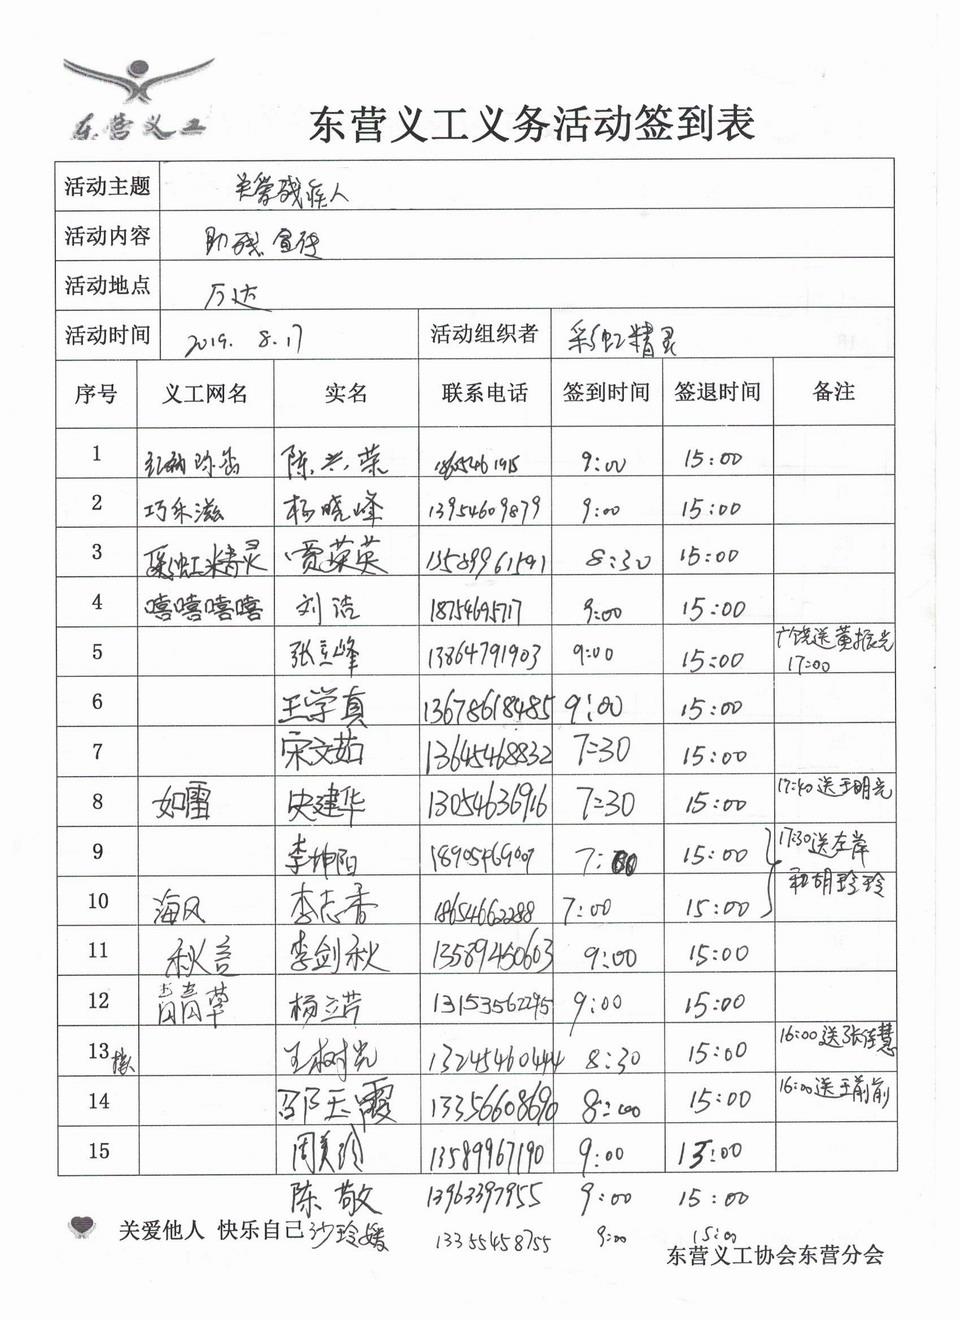 东营义工
东营义工义务活动签到表
活动主题 关爱残疾人
活动内容 助残宣传
活动地点 万达
活动时间 2019. 8.17 活动组织者 彩虹精灵
序号 义工网名 实名 联系电话 签到时间 签退时间 备注
1 陈兰荣 9:00 15:00
2 巧乐滋 杨晓峰 13954609879 9:00 15:00
3 彩虹精灵 贾荣英 13589961591 8:30 15:00
4 嘻嘻嘻嘻 刘洁 18754695717 9:00 15:00
5 张立峰 13864791903 9:00 15:00 广饶送董振光 17:00
6 王学真 13678618485 9:00 15:00
7 宋文茹 13645468832 7:30 15:00
8 如雷 史建华 13054636916 7:30 15:00 17:40送王明光
9 李坤阳 18905469007 7:00 15:00 17:30送左岸
10 海风 李志香 18654662288 7:00 15:00 和胡玲玲
11 秋言 李剑秋 13589450603 9:00 15:00
12 青青草 杨立芹 13153562295 9:00 15:00
13 王树光 13245460444 8:30 15:00 16:00送张佳慧
14 邵玉霞 13356608690 8:00 15:00 16:00送王前前
15 周美玲 13589967190 9:00 15:00
陈敬 13963397955 9:00 15:00
关爱他人 快乐自己 沙玲媛 13355458755 9:00 15:00
东营义工协会东营分会